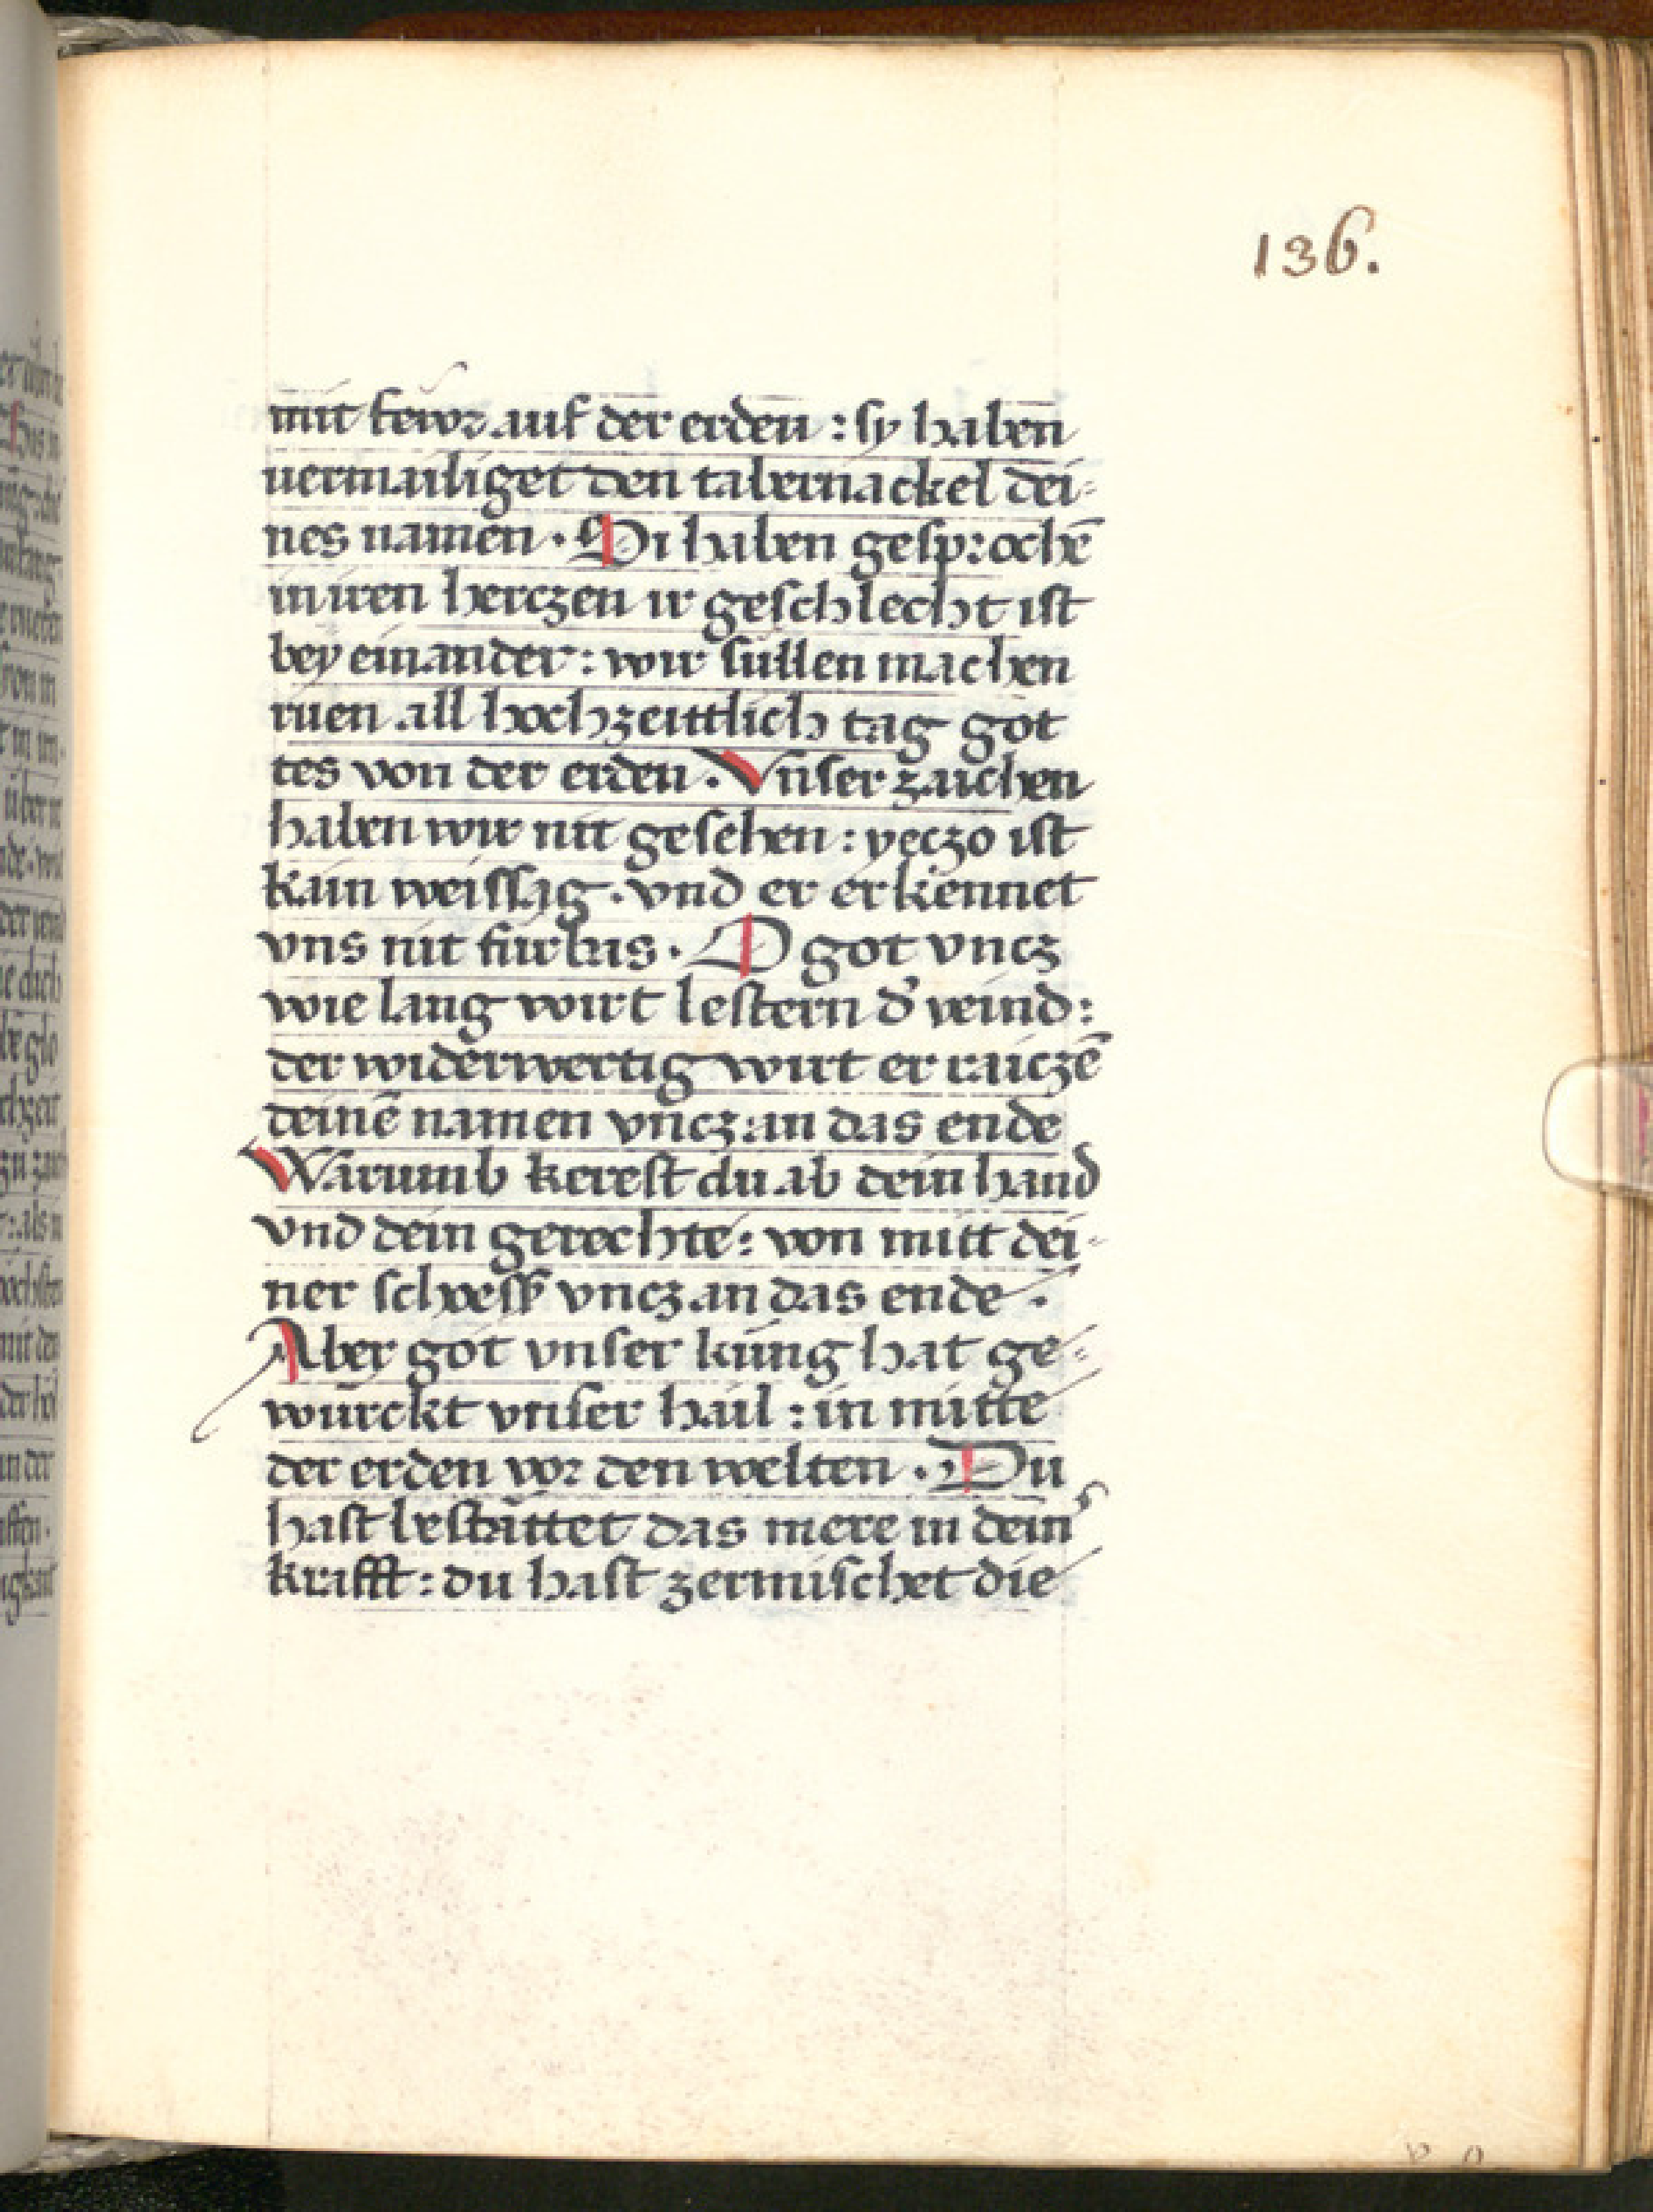 136.
mit fewr auf der erden : sy haben
uermailiget den tabernackel dei-
nes namen · Si haben gesprochē
in iren herczen ir geschlecht ist
bey einander : wir sullen machen
ruen all hochzeittlich tag got
tes von der erden · Vnser zaichen
haben wir nit gesehen : yeczo ist
kain weissag · vnd er erkennet
vns nit fürbas · O got vncz
wie lang wirt lestern d' veind :
der widerwertig wirt er raiczē
deinē namen vncz an das ende
Warumb kerest du ab dein hand
vnd dein gerechte : von mitt dei-
ner schoss vncz an das ende ·
Aber got vnser küng hat ge-
würckt vnser hail : in mitte
der erden vor den welten · Du
hast bestättet das mere in dein'
krafft : du hast zermischet die